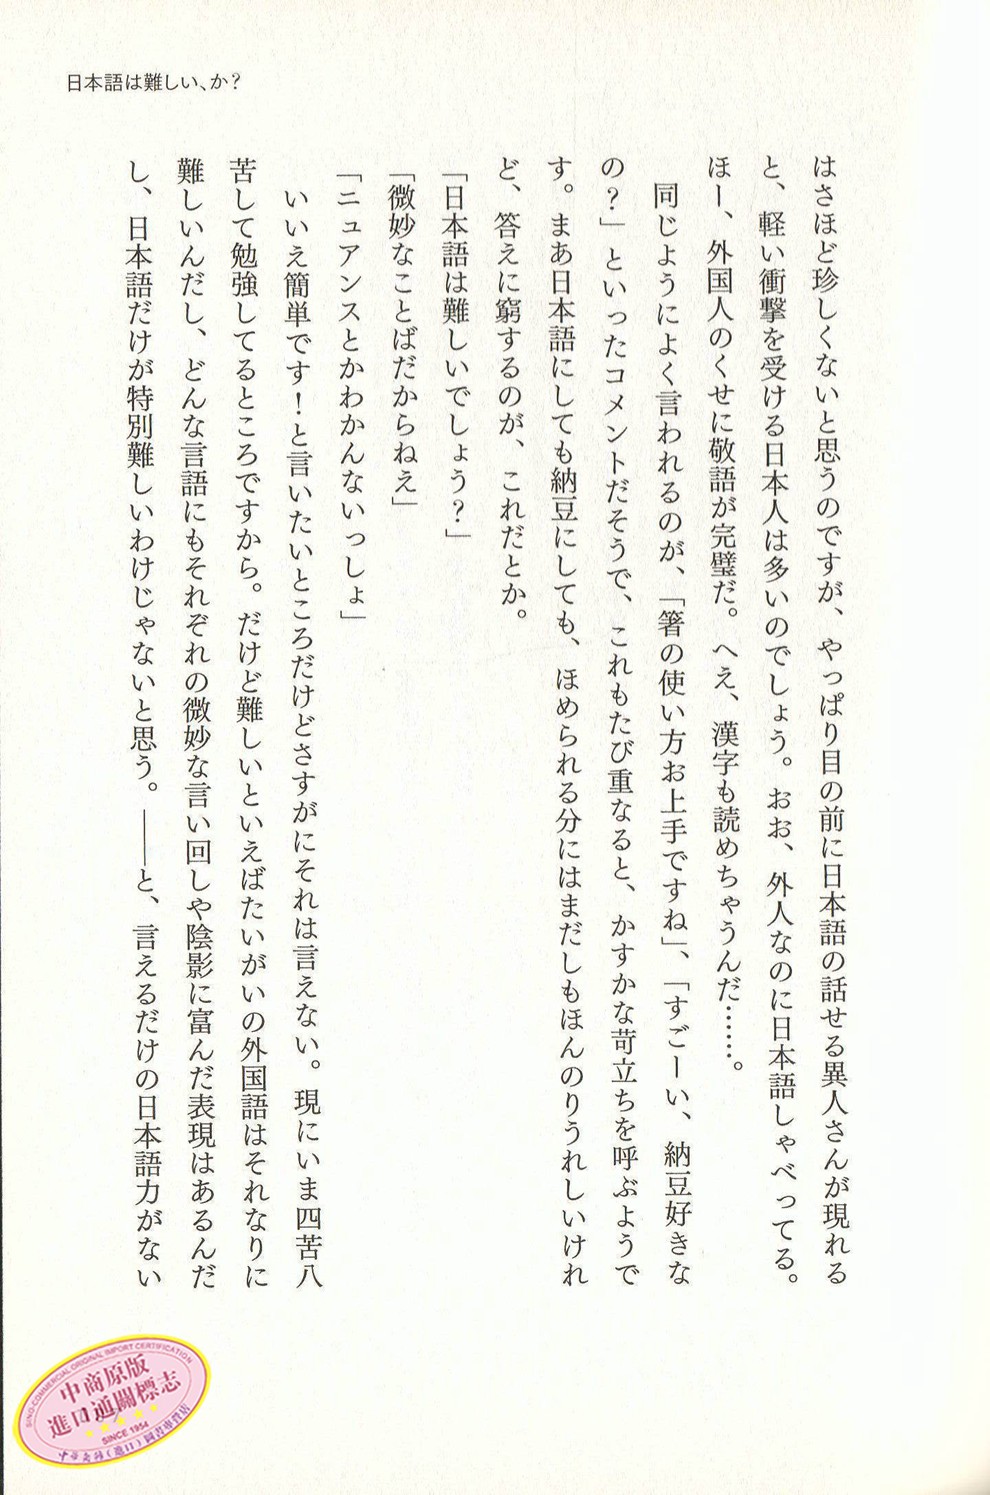 日本語は難しい、か?
はさほど珍しくないと思うのですが、やっぱり目の前に日本語の話せる異人さんが現れる
と、軽い衝撃を受ける日本人は多いのでしょう。おお、外人なのに日本語しゃべってる。
ほー、外国人のくせに敬語が完璧だ。へえ、漢字も読めちゃうんだ……。
同じようによく言われるのが、「箸の使い方お上手ですね」、「すごーい、納豆好きな
の?」といったコメントだそうで、これもたび重なると、かすかな苛立ちを呼ぶようで
す。まあ日本語にしても納豆にしても、ほめられる分にはまだしもほんのりうれしいけれ
ど、答えに窮するのが、これだとか。
「日本語は難しいでしょう?」
「微妙なことばだからねえ」
「ニュアンスとかわかんないっしょ」
いいえ簡単です!と言いたいところだけどさすがにそれは言えない。現にいま四苦八
苦して勉強してるところですから。だけど難しいといえばたいがいの外国語はそれなりに
難しいんだし、どんな言語にもそれぞれの微妙な言い回しや陰影に富んだ表現はあるんだ
し、日本語だけが特別難しいわけじゃないと思う。――と、言えるだけの日本語力がない
SINO-COMMERCIAL ORIGINAL IMPORT CERTIFICATION
中商原版
進口通關標志
SINCE 1954